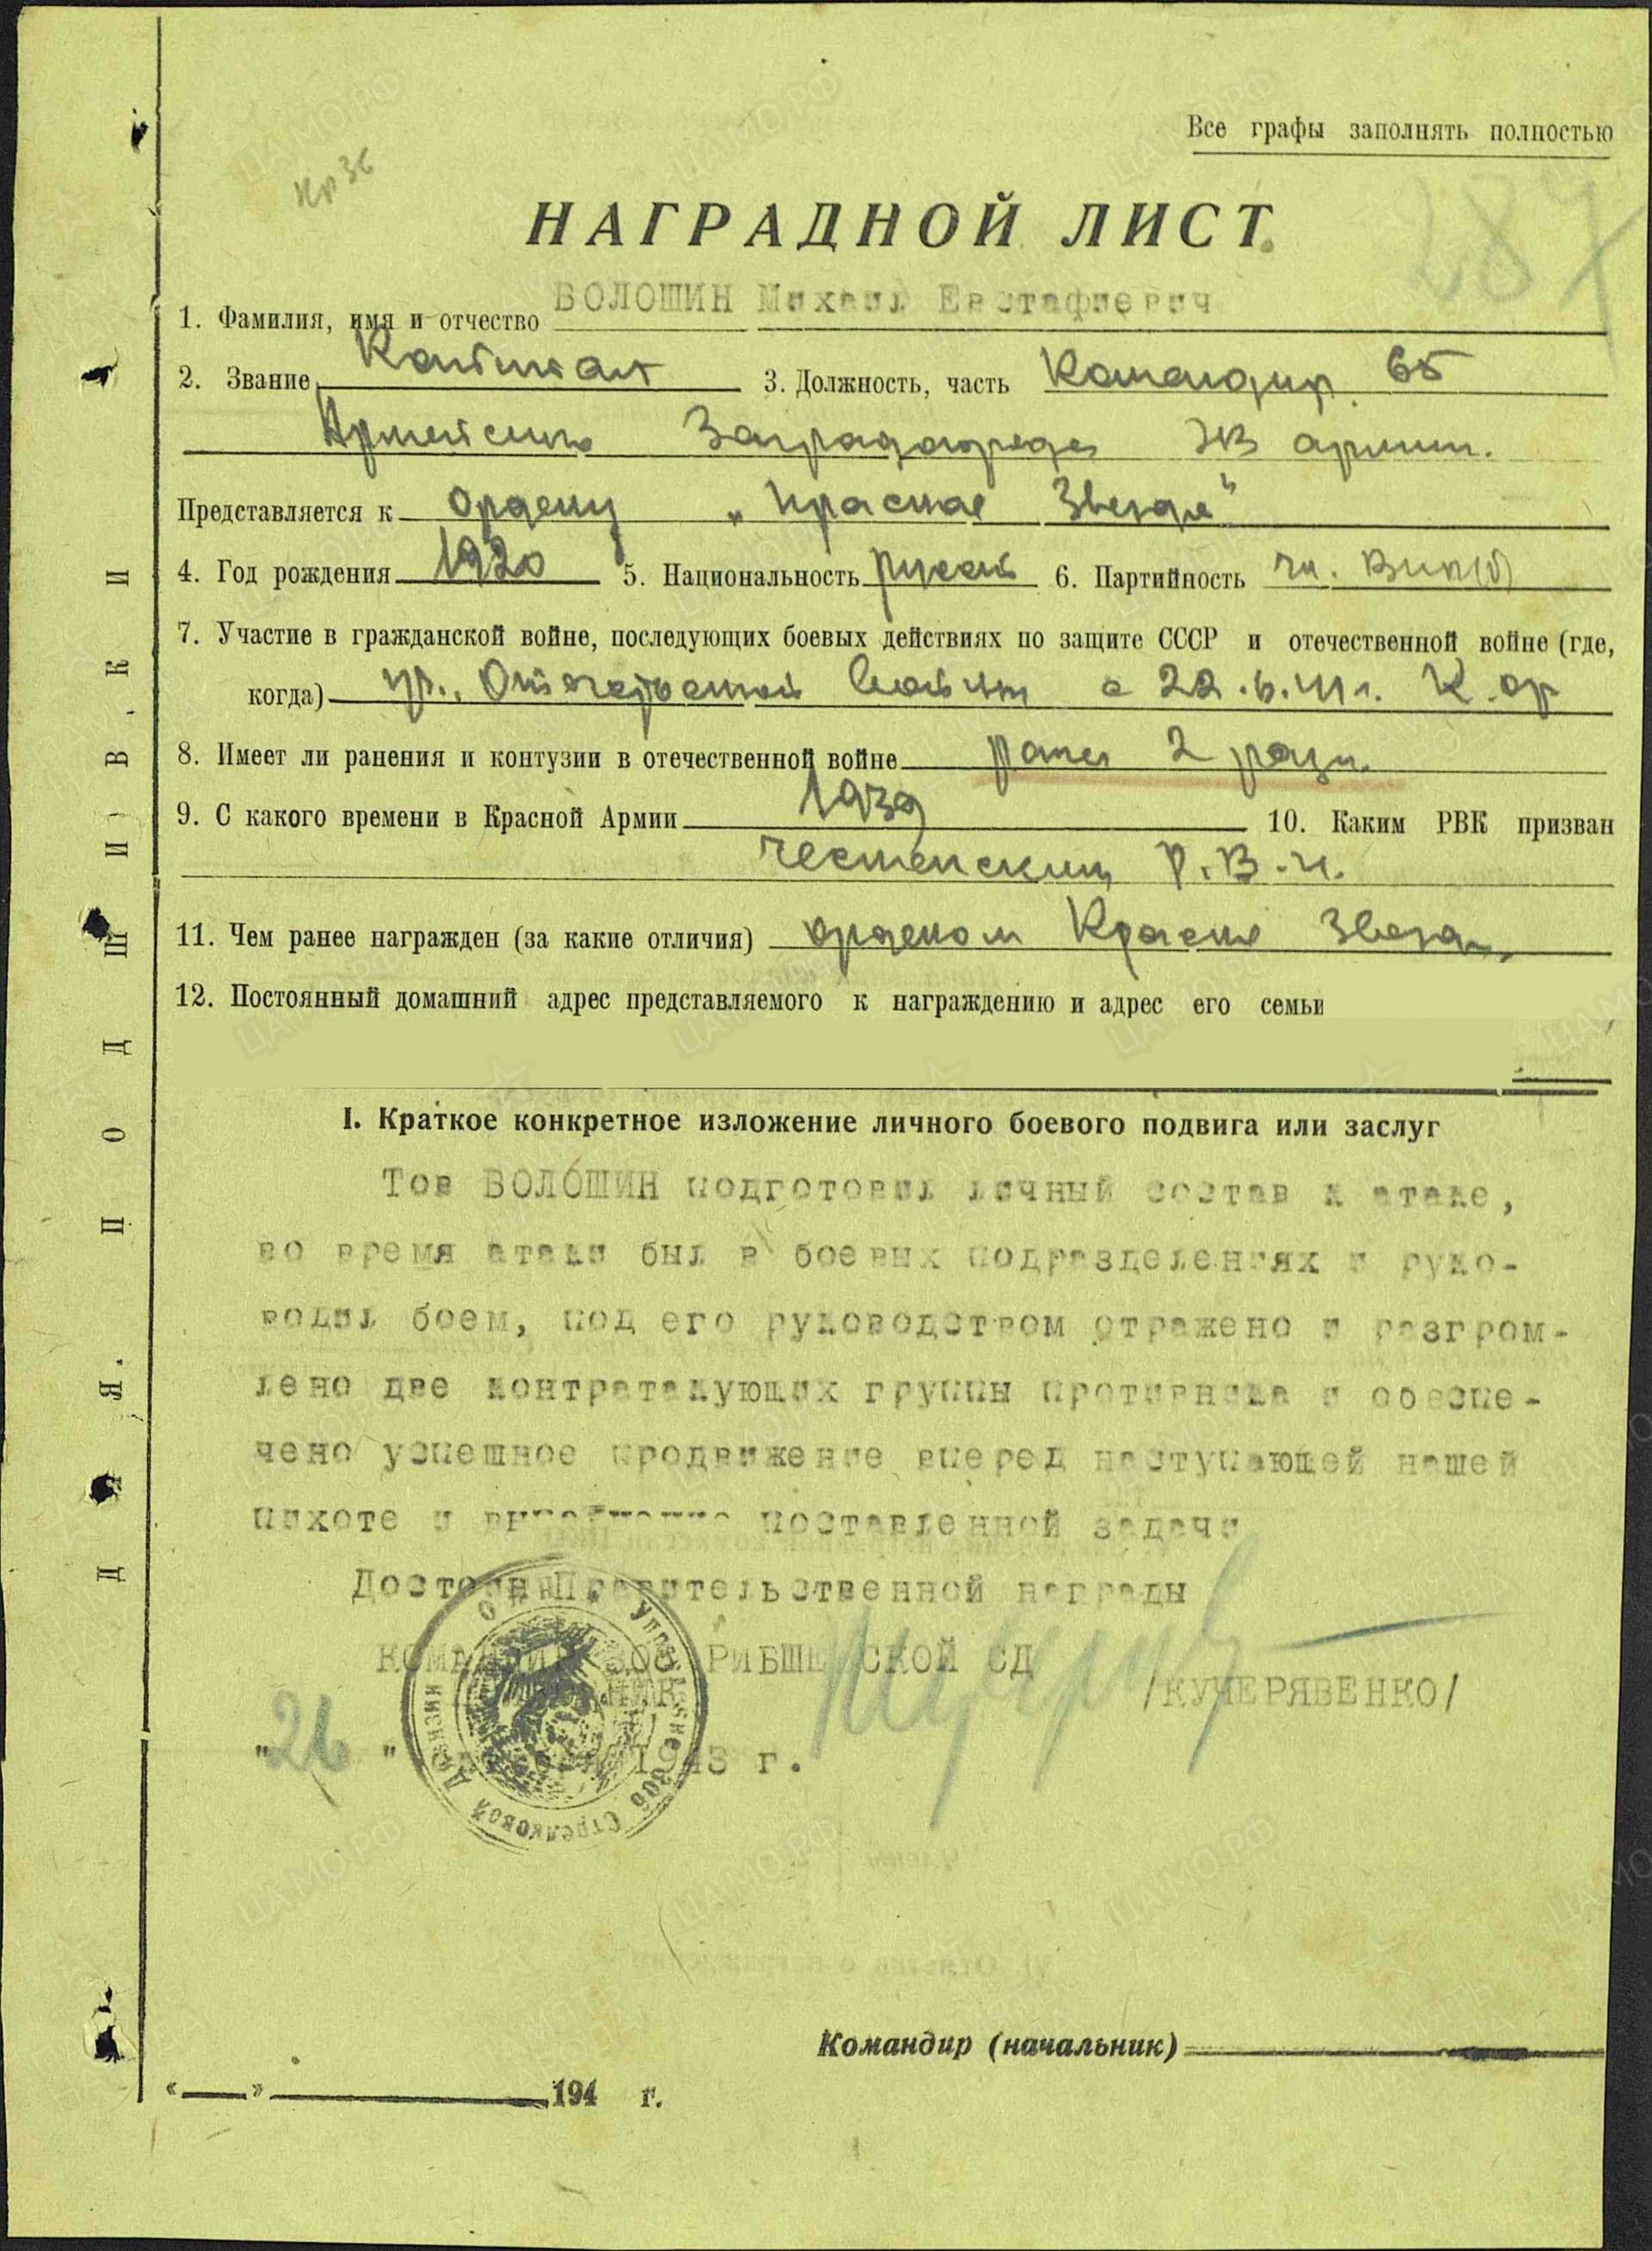 Все графы заполнять полностью
287
НАГРАДНОЙ ЛИСТ
1. Фамилия, имя и отчество ВОЛОШИН Михаил Евстафиевич
2. Звание Капитан 3. Должность, часть Командир 65
Армейского Заградотряда армии.
Представляется к ордену „Красная Звезда"
4. Год рождения 1920 5. Национальность русский 6. Партийность чл. ВКП(б)
7. Участие в гражданской войне, последующих боевых действиях по защите СССР и отечественной войне (где,
когда) Отечественной с 22.6.41 г.
8. Имеет ли ранения и контузии в отечественной войне ранен 2 раза
9. С какого времени в Красной Армии 1939 10. Каким РВК призван
Р.В.К.
11. Чем ранее награжден (за какие отличия) орденом Красная Звезда
12. Постоянный домашний адрес представляемого к награждению и адрес его семьи
I. Краткое конкретное изложение личного боевого подвига или заслуг
Тов ВОЛОШИН подготовил личный состав к атаке,
во время атаки был в боевых подразделениях и руко-
водил боем, под его руководством отражено и разгром-
лено две контратакующих группы противника и обеспе-
чено успешное продвижение вперед наступающей нашей
пихоте и поставленной задачи
Достоин Правительственной награды
КОМАНДИР 306 РИБШЕВСКОЙ СД
/КУЧЕРЯВЕНКО/
"26" 1943 г.
Управление 306 Стрелковой Дивизии
Командир (начальник)
«___» 194 г.
ДЛЯ ПОДШИВКИ
ЦАМО.РФ